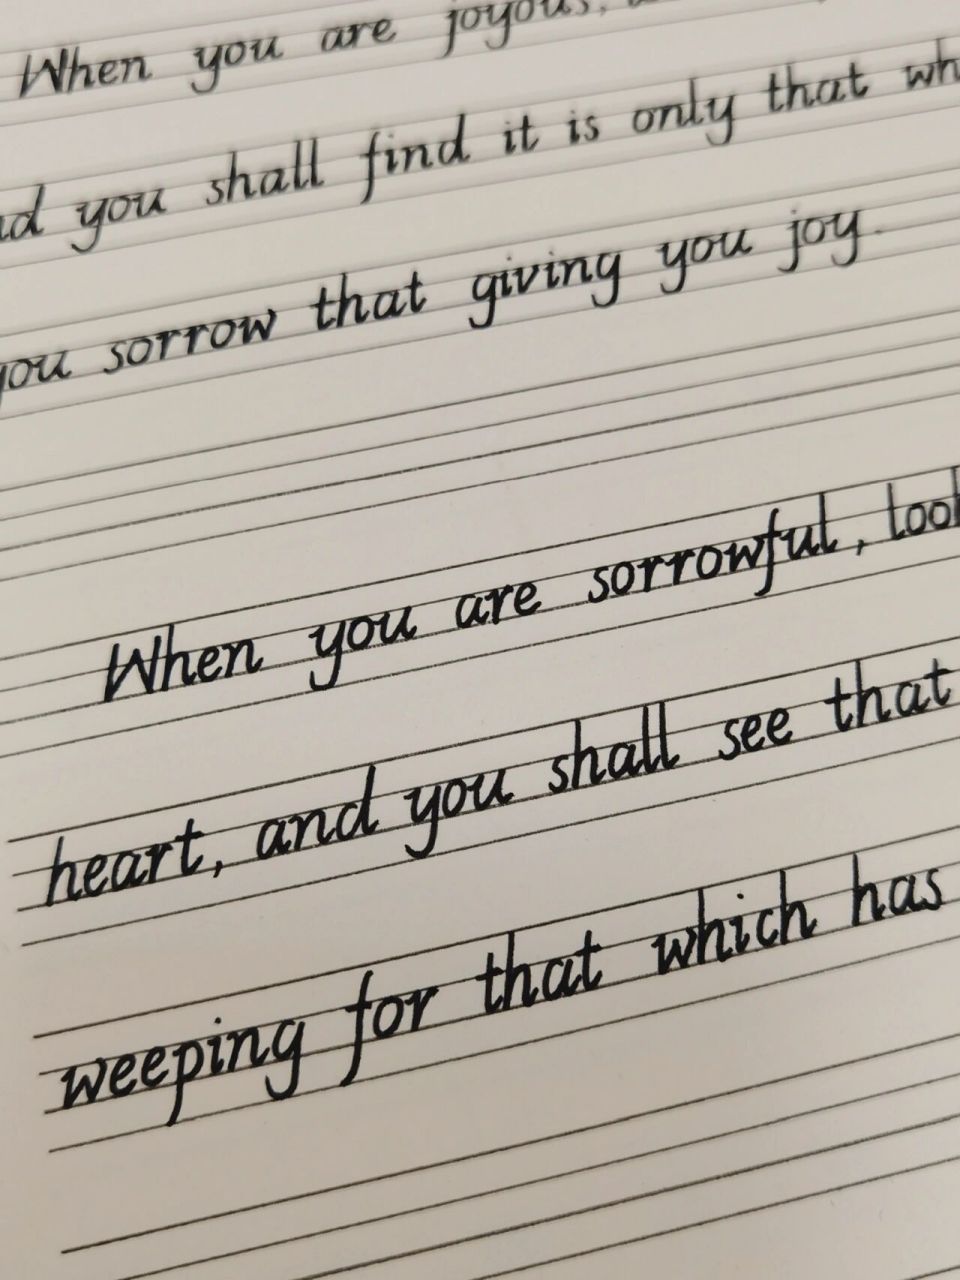 When you are joyous,
you shall find it is only that
you sorrow that giving you joy.
When you are sorrowful,
heart, and you shall see that
weeping for that which has